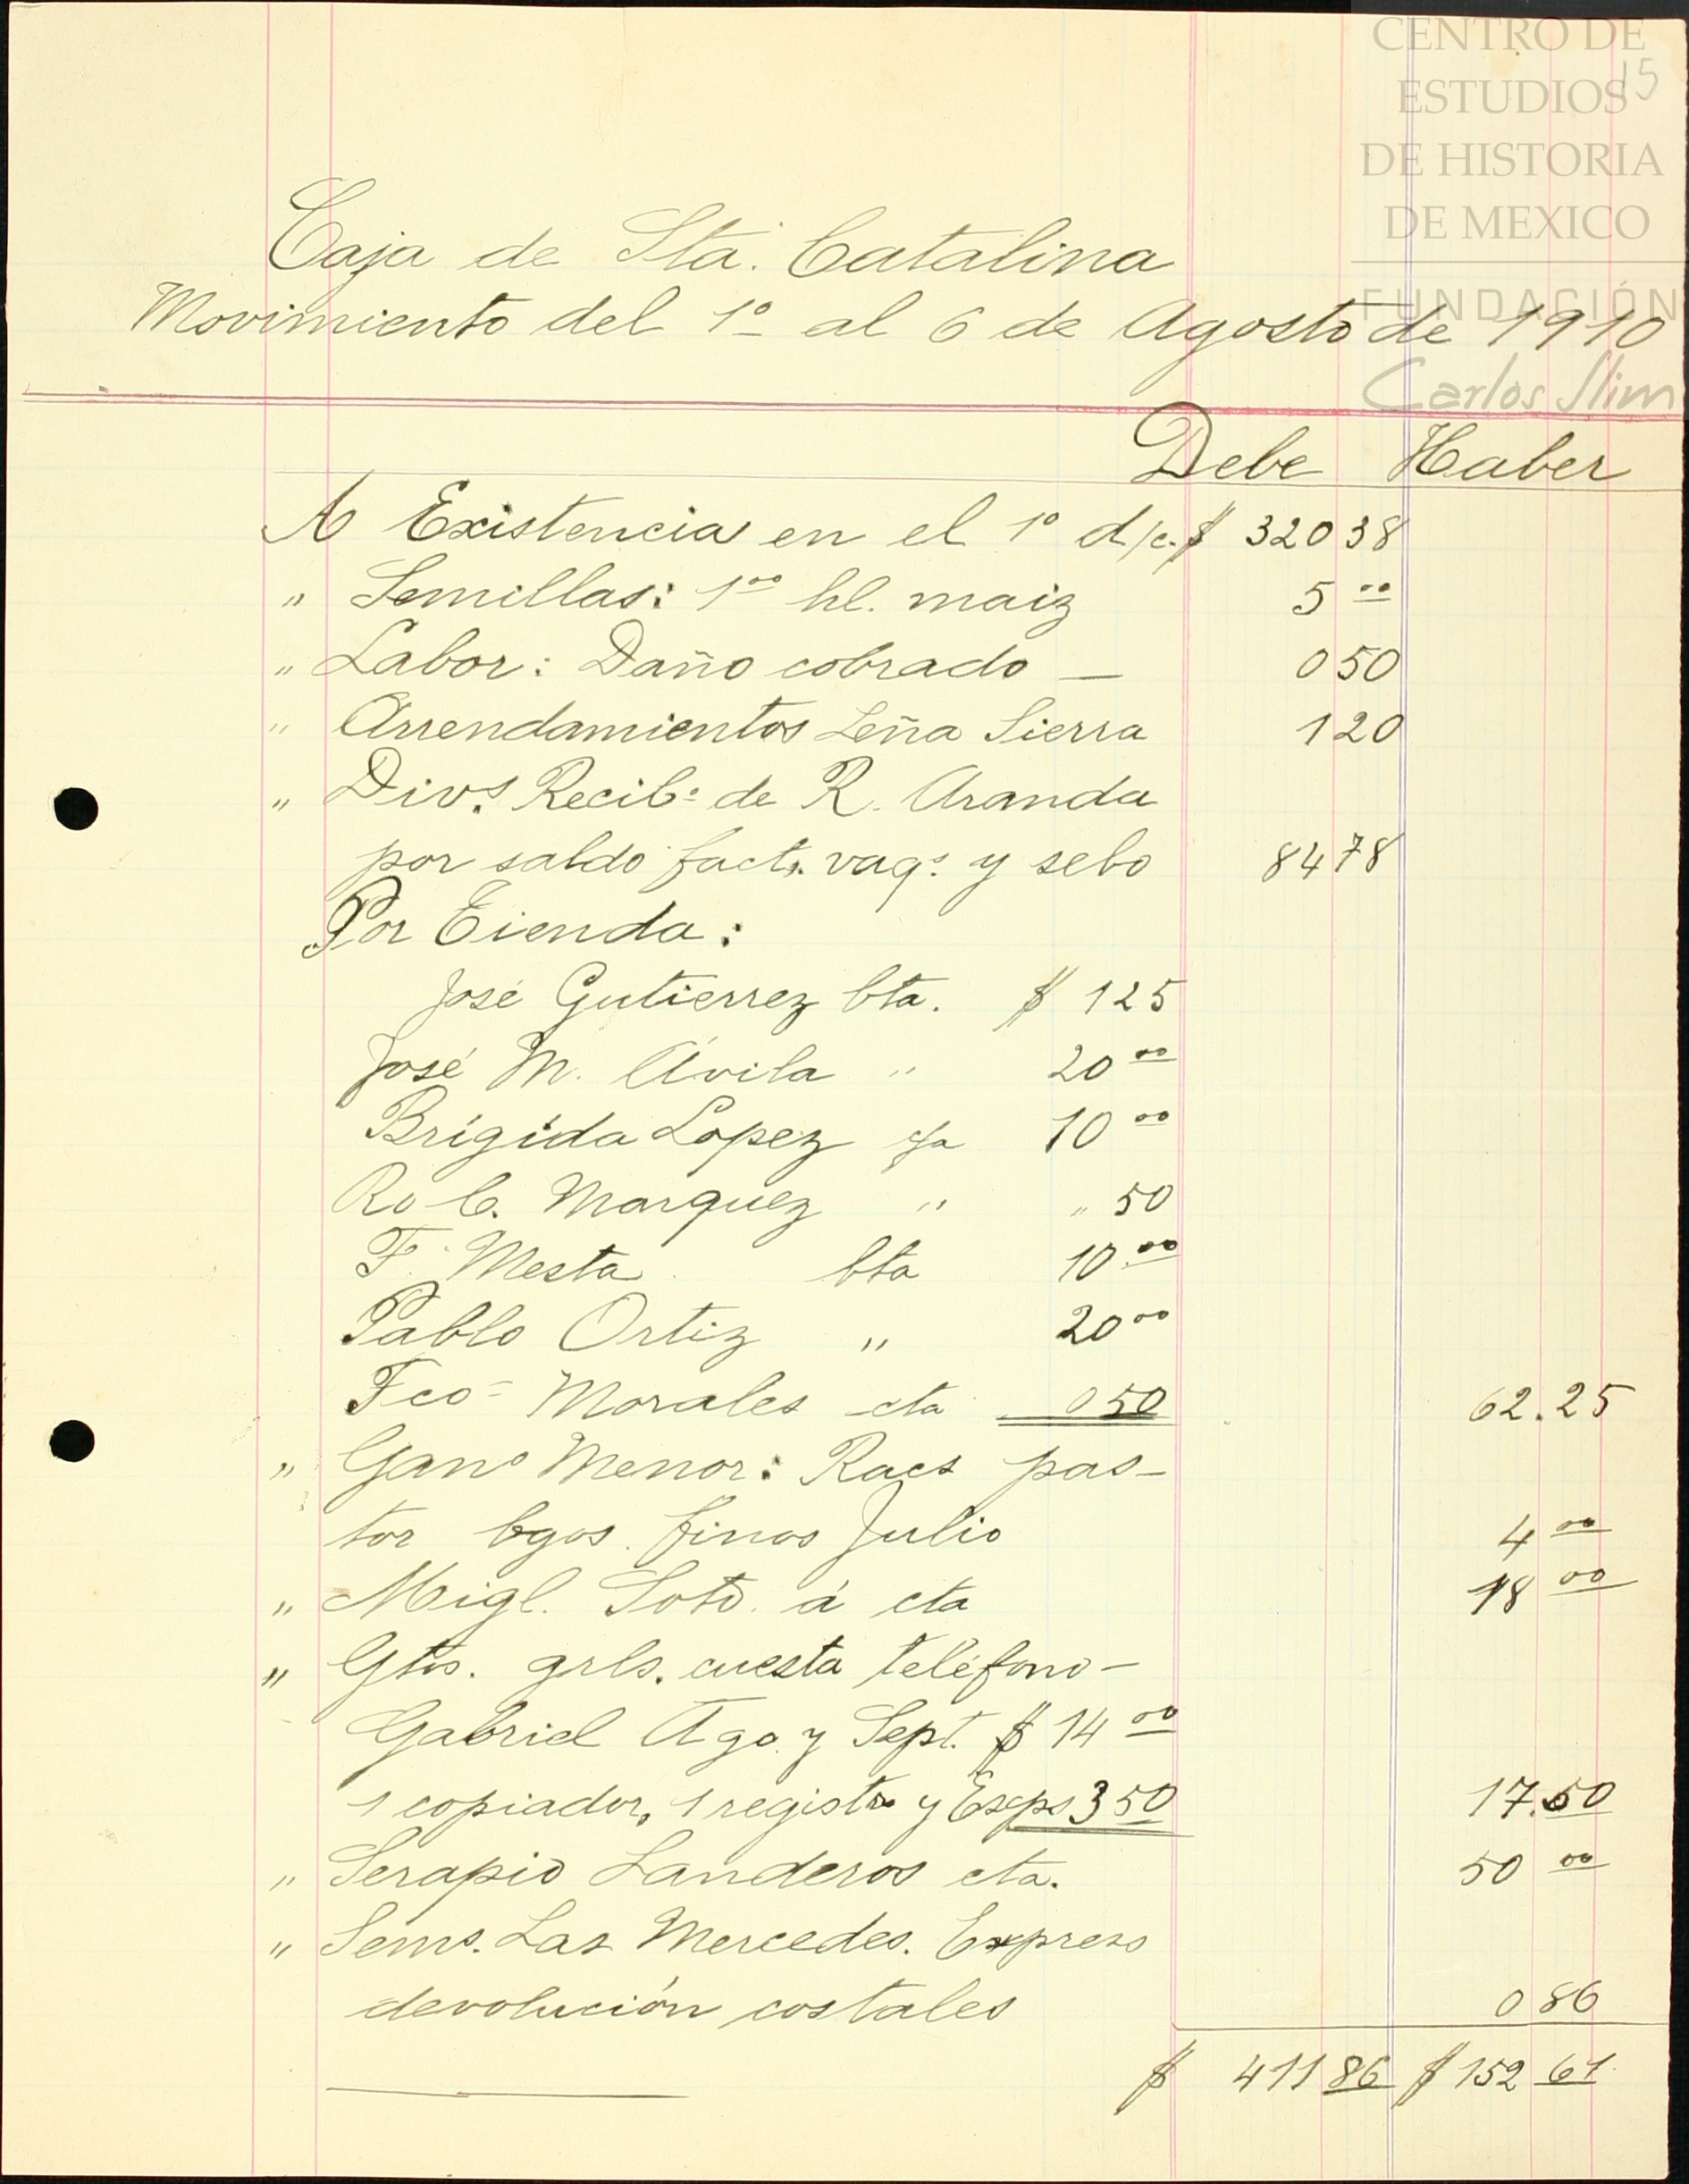 CENTRO DE
ESTUDIOS
15
DE HISTORIA
DE MEXICO
FUNDACIÓN
Carlos Slim
Caja de Sta. Catalina
Movimiento del 1º al 6 de Agosto de 1910
Debe Haber
A Existencia en el 1º d/c. $ 320 38
" Semillas: 100 hl. maiz 5 00
" Labor: Daño cobrado — 0 50
" Arrendamientos Leña Sierra 1 20
" Divs. Recibº de R. Aranda
por saldo fact. vaqs. y sebo 84 78
Por Tienda:
José Gutierrez bta. $ 1 25
José M. Ávila " 20 00
Brígida Lopez 10 00
Ro C. Marquez " " 50
F. Mesta bta 10 00
Pablo Ortiz " 20 00
Fco Morales cta 0 50 62.25
" Gano Menor: Racs pas-
tor bgos. finos Julio 4 00
" Migl. Soto á cta 18 00
" Gtos. grls. cuesta teléfono-
Gabriel Ago. y Sept. $ 14 00
1 copiador, 1 registro y Esqps 3 50 17.50
" Serapio Landeros cta. 50 00
" Sems. Las Mercedes. Expreso
devolución costales 0 86
$ 411 86 $ 152 61